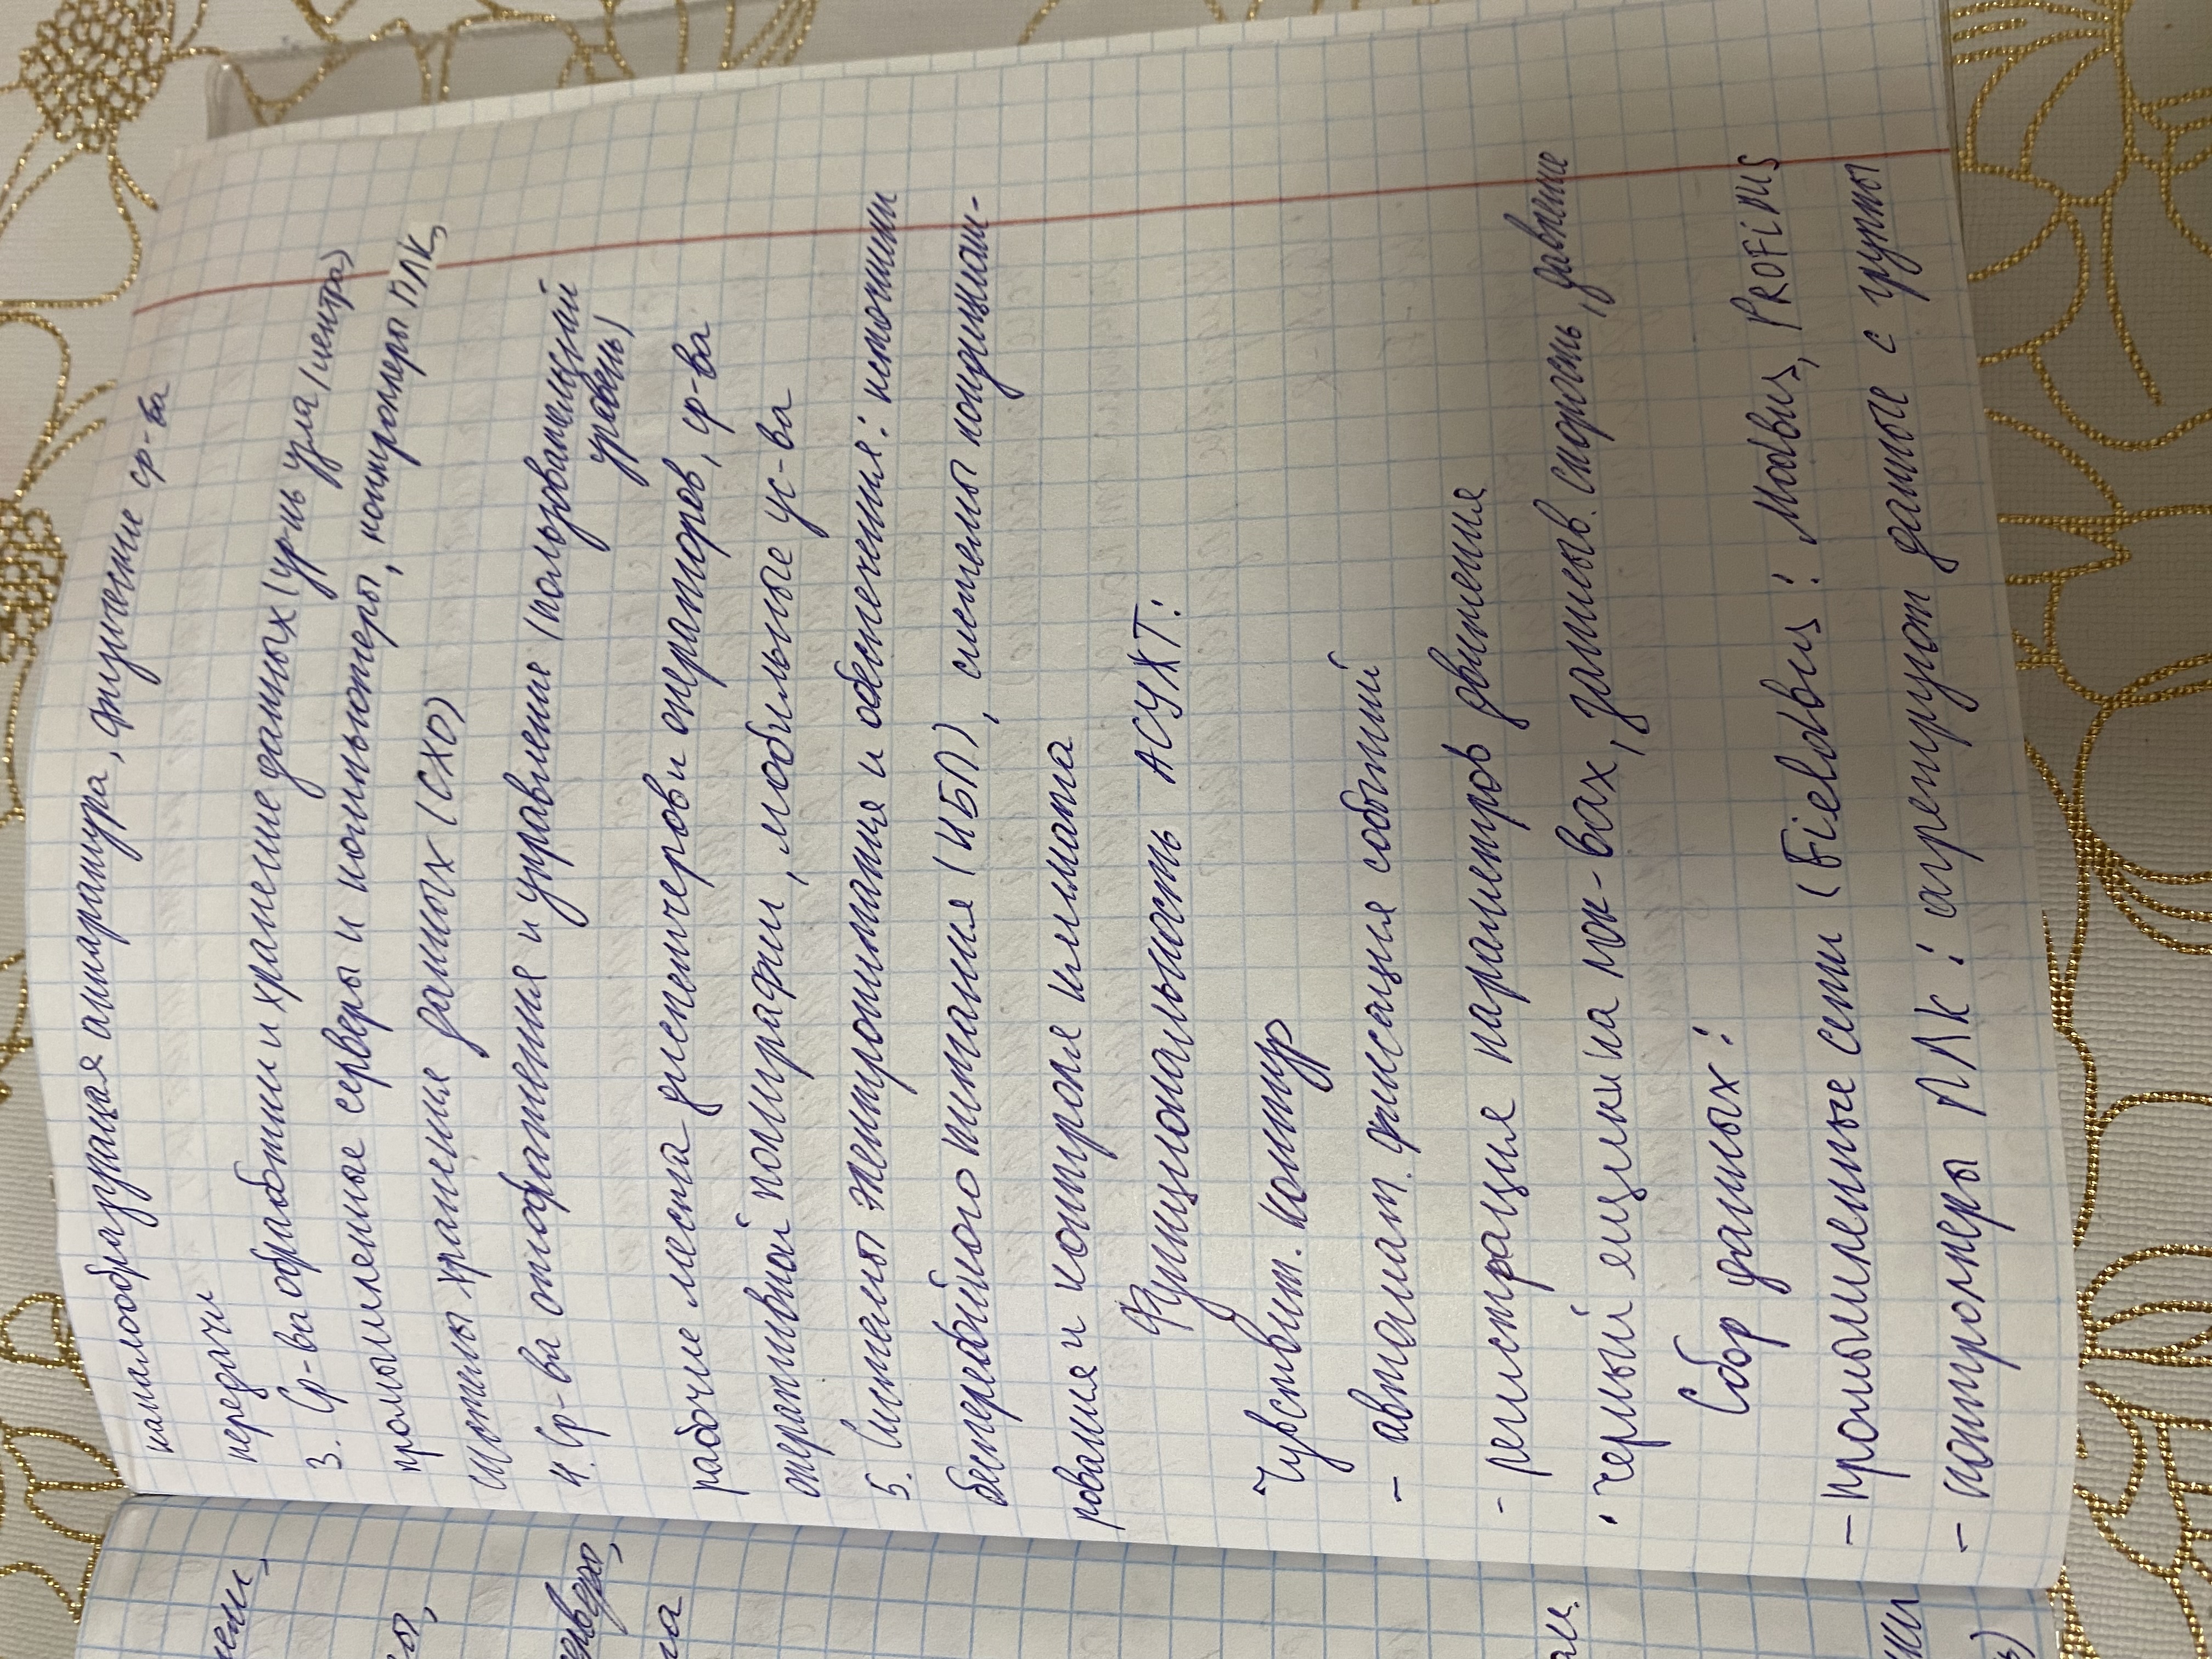 каналообразующая аппаратура, физические ср-ва
передачи
3. Ср-ва обработки и хранение данных (ур-нь узла/центра)
промышленные серверы и компьютеры, контроллеры ПЛК,
системы хранение данных (СХД)
4. Ср-ва отображения и управление (пользовательский
уровень)
рабочие места диспетчеров и операторов, ср-ва
оперативной полиграфии, мобильные ус-ва
5. Системы электропитания и обеспечения: источники
бесперебойного питания (ИБП), системы кондициони-
рования и контроля климата
Функциональность АСУЖТ:
Чувствит. контур
- автомат. фиксация событий
- регистрация параметров движения
· Черный ящик на лок-вах, запись в. скорость, давление
Сбор данных:
- промышленные сети (Fieldbus: Modbus, PROFIBUS
- контроллеры ПЛК: агрегируют данные с групы
ы,
га